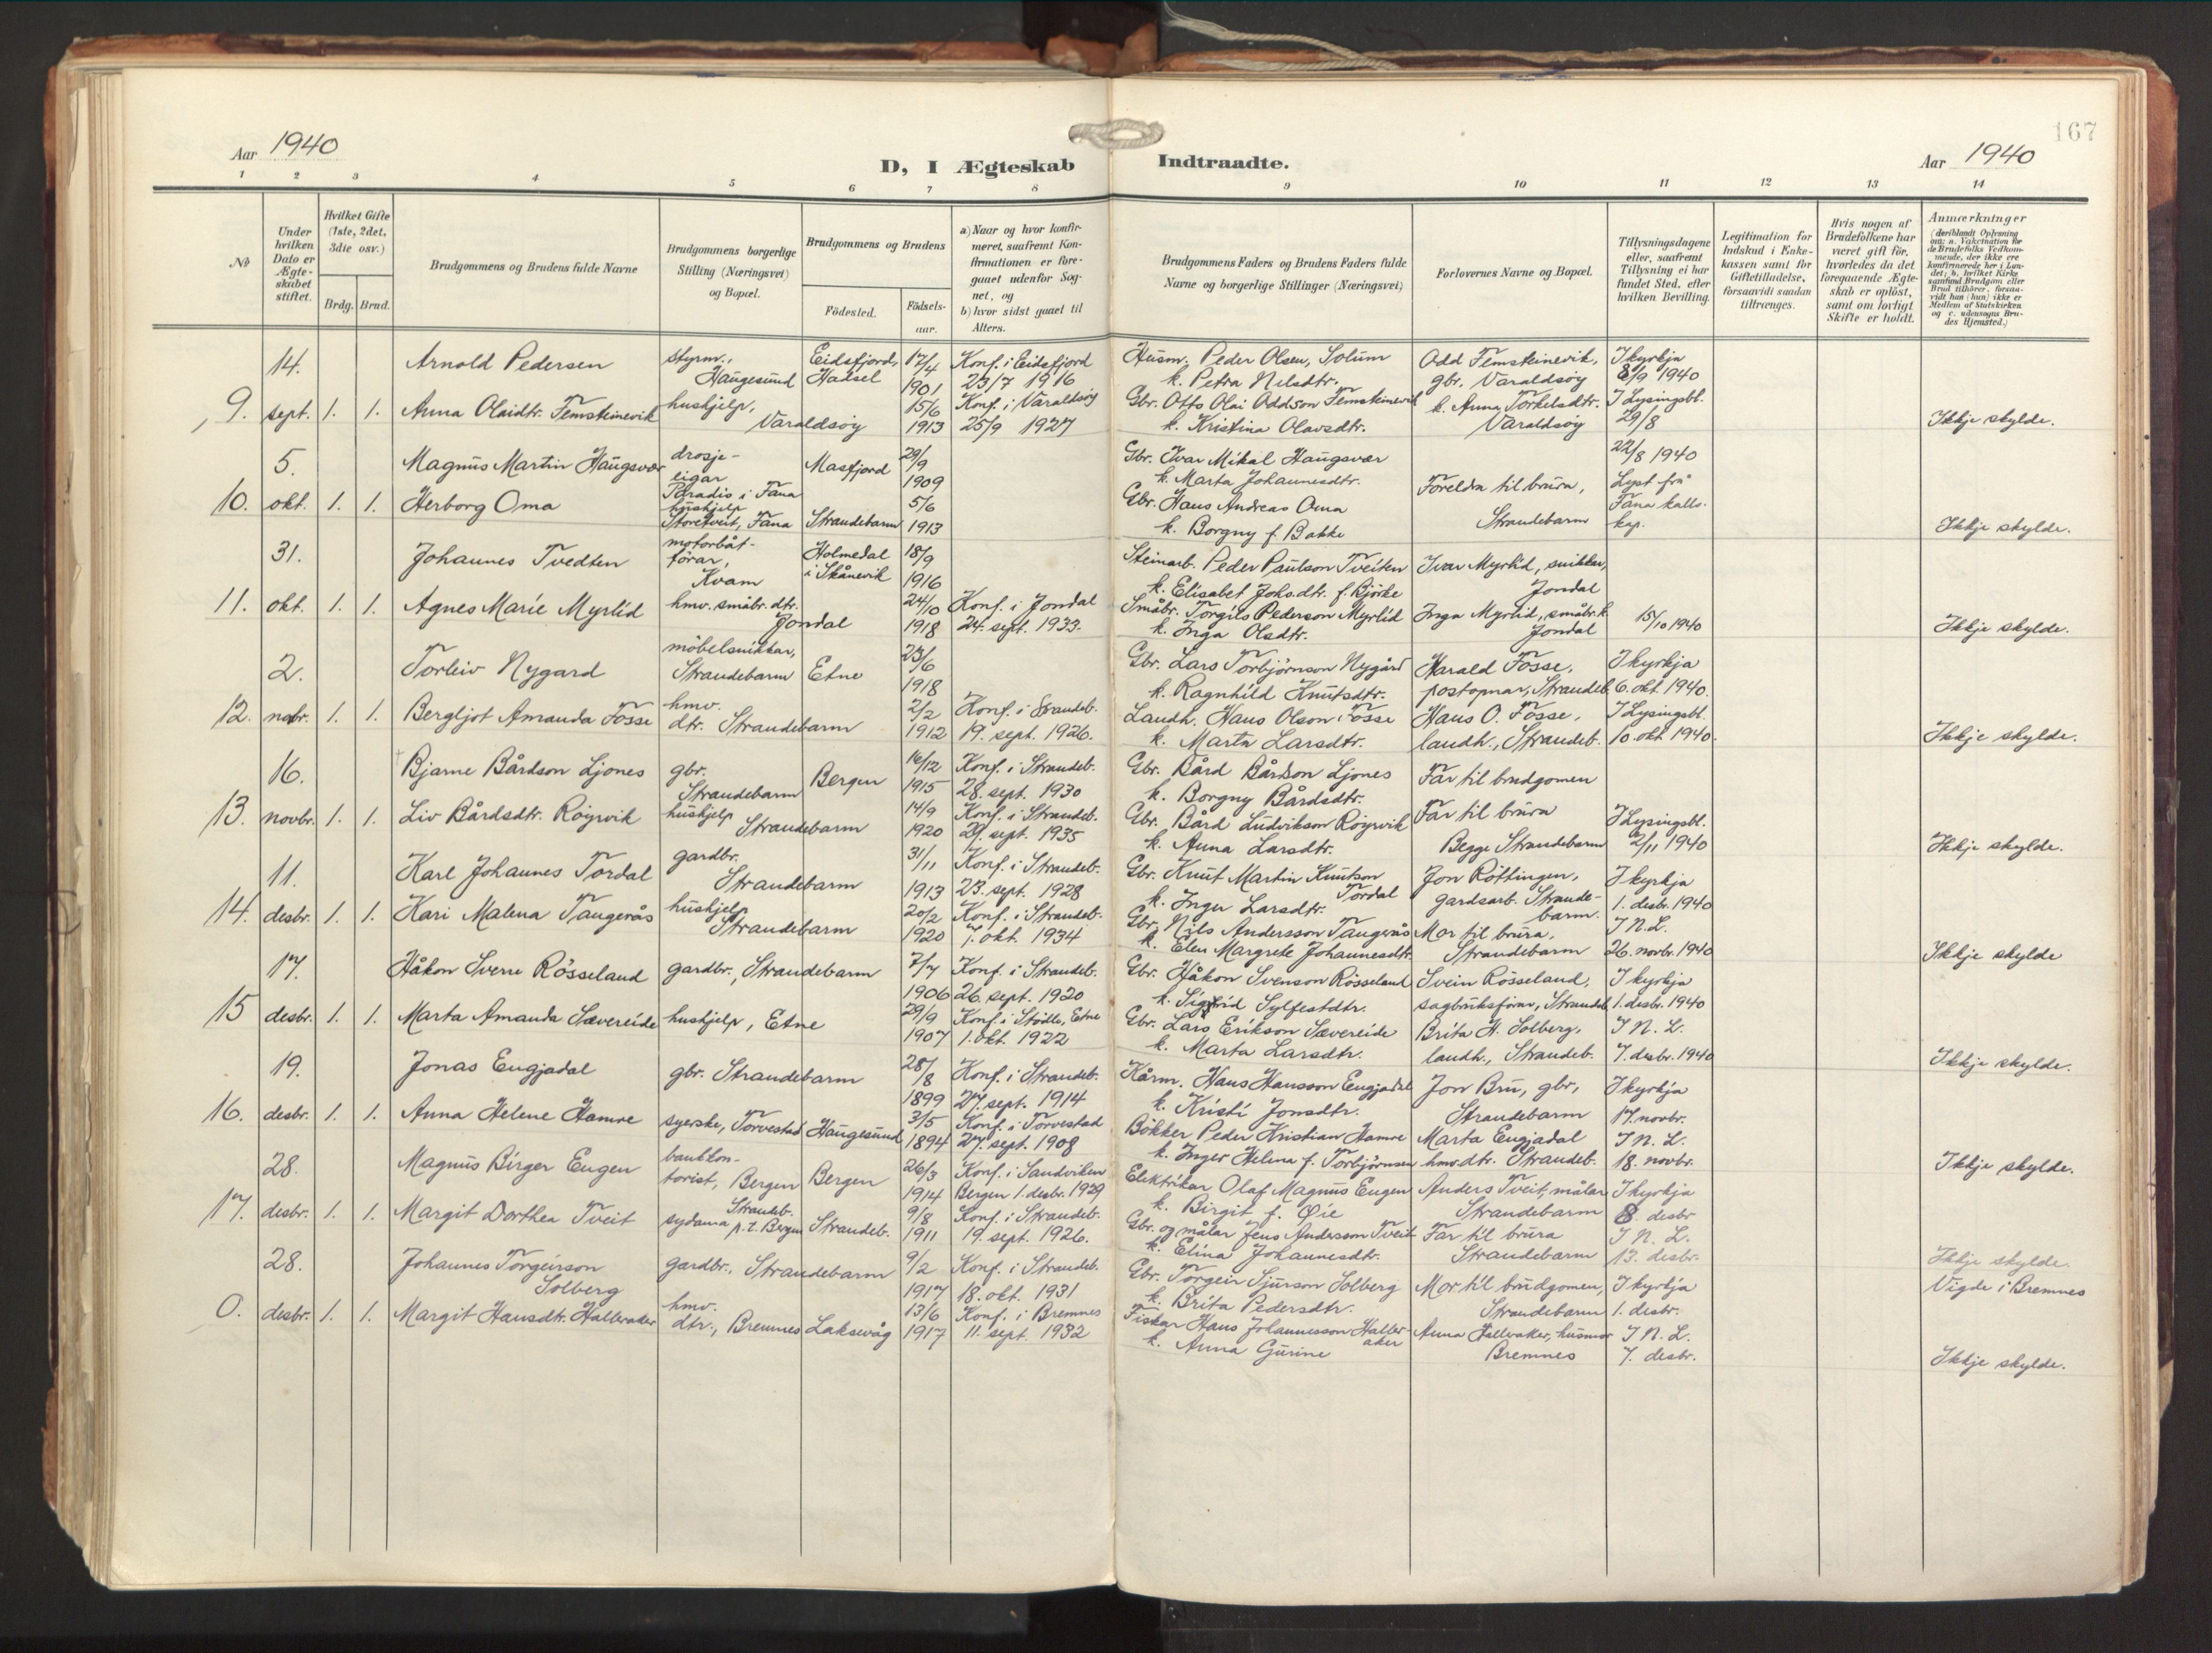 167
Aar 1940
D, I Ægteskab Indtraadte.
Aar 1940
1 2 3 4 5 6 7 8 9 10 11 12 13 14
No
Under hvilken Dato er Ægteskabet stiftet.
Hvilket Gifte (1ste, 2det, 3die osv.)
Brdg. Brud.
Brudgommens og Brudens fulde Navne
Brudgommens borgerlige Stilling (Næringsvei) og Bopæl.
Brudgommens og Brudens
Födested. Födsels-aar.
a) Naar og hvor konfirmeret, saafremt Konfirmationen er foregaaet udenfor Sognet, og
b) hvor sidst gaaet til Alters.
Brudgommens Faders og Brudens Faders fulde Navne og borgerlige Stillinger (Næringsvei)
Forlovernes Navne og Bopæl.
Tillysningsdagene eller, saafremt Tillysning ei har fundet Sted, efter hvilken Bevilling.
Legitimation for Indskud i Enkekassen samt for Giftetilladelse, forsaavidt saadan tiltrænges.
Hvis nogen af Brudefolkene har været gift för, hvorledes da det foregaaende Ægteskab er oplöst, samt om lovligt Skifte er holdt.
Anmærkninger
(deriblandt Oplysning om: a. Vakcination for de Brudefolks Vedkommende, der ikke ere konfirmerede her i Landet; b. hvilket Kirkesamfund Brudgom eller Brud tilhörer, forsaavidt han (hun) ikke er Medlem af Statskirken og c. udensogns Brudes Hjemsted.)
14. Arnold Pedersen styrm., Haugesund Eidsfjord, Hadsel 17/4 1901 Konf. i Eidsfjord 23/7 1916 Husm. Peder Olsen, Solum k. Petra Nilsdtr. Odd Femsteinevik, gbr. Varaldsøy I kyrkja 8/9 1940
9. sept. 1. 1. Anna Olaidtr. Femsteinevik hushjelp, Varaldsøy 15/6 1913 Konf. i Varaldsøy 25/9 1927 Gbr. Otto Olai Oddson Femsteinevik k. Kristina Olavsdtr. k. Anna Torkelsdtr. Varaldsøy I Lysingsbl. 29/8 Ikkje skylde.
5. Magnus Martin Haugsvær drosje-eigar Paradis i Fana Masfjord 29/9 1909 Gbr. Ivar Mikal Haugsvær k. Marta Johannesdtr. Foreldra til brura, Strandebarm 22/8 1940 Lyst frå Fana kalls. kap.
10. okt. 1. 1. Herborg Oma hushjelp Storetveit, Fana Strandebarm 5/6 1913 Gbr. Hans Andreas Oma k. Borgny f. Bakke Ikkje skylde.
31. Johannes Tvedten motorbåt-förar, Kvam Holmedal i Skånevik 18/9 1916 Steinarb. Peder Paulson Tveiten k. Elisabet Johs.dtr. f. Bjørke Ivar Myrlid, snikkar, Jondal
11. okt. 1. 1. Agnes Marie Myrlid hmv. småbr. dtr. Jondal 24/10 1918 Konf. i Jondal 24. sept. 1933. Småbr. Torgils Pederson Myrlid k. Inga Olsdtr. Inga Myrlid, småbr.k. Jondal 15/10 1940 Ikkje skylde.
2. Torleiv Nygard möbelsnikkar, Strandebarm Etne 23/6 1918 Gbr. Lars Torbjörnson Nygård k. Ragnhild Knutsdtr. Harald Fosse, postopnar, Strandeb. I kyrkja 6. okt. 1940.
12. nobr. 1. 1. Bergljot Amanda Fosse hmv. dtr. Strandebarm 2/2 1912 Konf. i Strandeb. 19. sept. 1926. Landh. Hans Olson Fosse k. Marta Larsdtr. Hans O. Fosse, landh., Strandeb. I Lysingsbl. 10. okt 1940. Ikkje skylde.
16. Bjarne Bårdson Ljones gbr. Strandebarm Bergen 16/12 1915 Konf. i Strandeb. 28. sept. 1930 Gbr. Bård Bårdson Ljones k. Borgny Bårdsdtr. Far til brudgomen
13. novbr. 1. 1. Liv Bårdsdtr. Röyrvik hushjelp Strandebarm 14/9 1920 Konf. i Strandeb. 29. sept. 1935 Gbr. Bård Ludvikson Röyrvik k. Anna Larsdtr. Far til brura Begge Strandebarm I Lysingsbl. 2/11 1940 Ikkje skylde.
11. Karl Johannes Tordal gardbr. Strandebarm 31/11 1913 Konf. i Strandeb. 23. sept. 1928 Gbr. Knut Martin Knutson Tordal k. Inger Larsdtr. Jon Röttingen, gardsarb. Strandebarm. I kyrkja 1. desbr. 1940
14. desbr. 1. 1. Kari Malena Tangerås hushjelp Strandebarm 20/2 1920 Konf. i Strandeb. 7. okt. 1934 Gbr. Nils Andersson Tangerås k. Elen Margrete Johannesdtr. Mor til brura, Strandebarm I N.L. 26. novbr. 1940 Ikkje skylde
17. Håkon Sverre Rösseland gardbr., Strandebarm 7/7 1906 Konf. i Strandeb. 26. sept. 1920 Gbr. Håkon Svenson Rösseland k. Sigrid Sylfestdtr. Svein Rösseland, sagbruksförar, Strandeb. I kyrkja 1. desbr. 1940
15 desbr. 1. 1. Marta Amanda Sævereide hushjelp, Etne 29/9 1907 Konf. i Stödle, Etne 1. okt. 1922 Gbr. Lars Erikson Sævereide k. Marta Larsdtr. Brita H. Solberg, landh., Strandeb. I N. L. 7. desbr. 1940 Ikkje skylde.
19. Jonas Eugjadal gbr. Strandebarm 28/8 1899 Konf. i Strandeb. 27. sept. 1914 Kårm. Hans Hansson Eugjadal k. Kristi Jonsdtr. Jon Bru, gbr., Strandebarm I kyrkja 17. novbr.
16. desbr. 1. 1. Anna Helene Hamre syerske, Torvestad Haugesund 3/5 1894 Konf. i Torvestad 27. sept. 1908 Bökker Peder Kristian Hamre k. Inger Helena f. Torbjörnsen Marta Eugjadal hmv.dtr. Strandeb. I N. L. 18. novbr. Ikkje skylde.
28. Magnus Birger Eugen bankkontorist, Bergen Bergen 26/3 1914 Konf. i Sandviken Bergen 1. desbr. 1929 Elektrikar Olaf Magnus Eugen k. Birgit f. Øie Anders Tveit, målar Strandebarm I kyrkja 8. desbr
17. desbr. 1. 1. Margit Dorthea Tveit sydama Strandeb. p.t. Bergen Strandeb. 9/8 1911 Konf. i Strandeb. 19. sept. 1926. Gbr. og målar Jens Andersson Tveit k. Elina Johannesdtr. Far til brura Strandebarm I N. L. 13. desbr. Ikkje skylde.
28. Johannes Torgeirson Solberg gardbr., Strandebarm 9/2 1917 Konf. i Strandeb. 18. okt. 1931 Gbr. Torgeir Sjurson Solberg k. Brita Pedersdtr. Mor til brudgomen, Strandebarm I kyrkja 1. desbr. Vigde i Bremnes
0. desbr. 1. 1. Margit Hansdtr. Halleraker hmv. dtr., Bremnes Laksevåg 13/6 1917 Konf. i Bremnes 11. sept. 1932 Fiskar Hans Johannesson Halleraker k. Anna Gurine Anna Halleraker, husmor Bremnes I N. L. 7. desbr. Ikkje skylde.